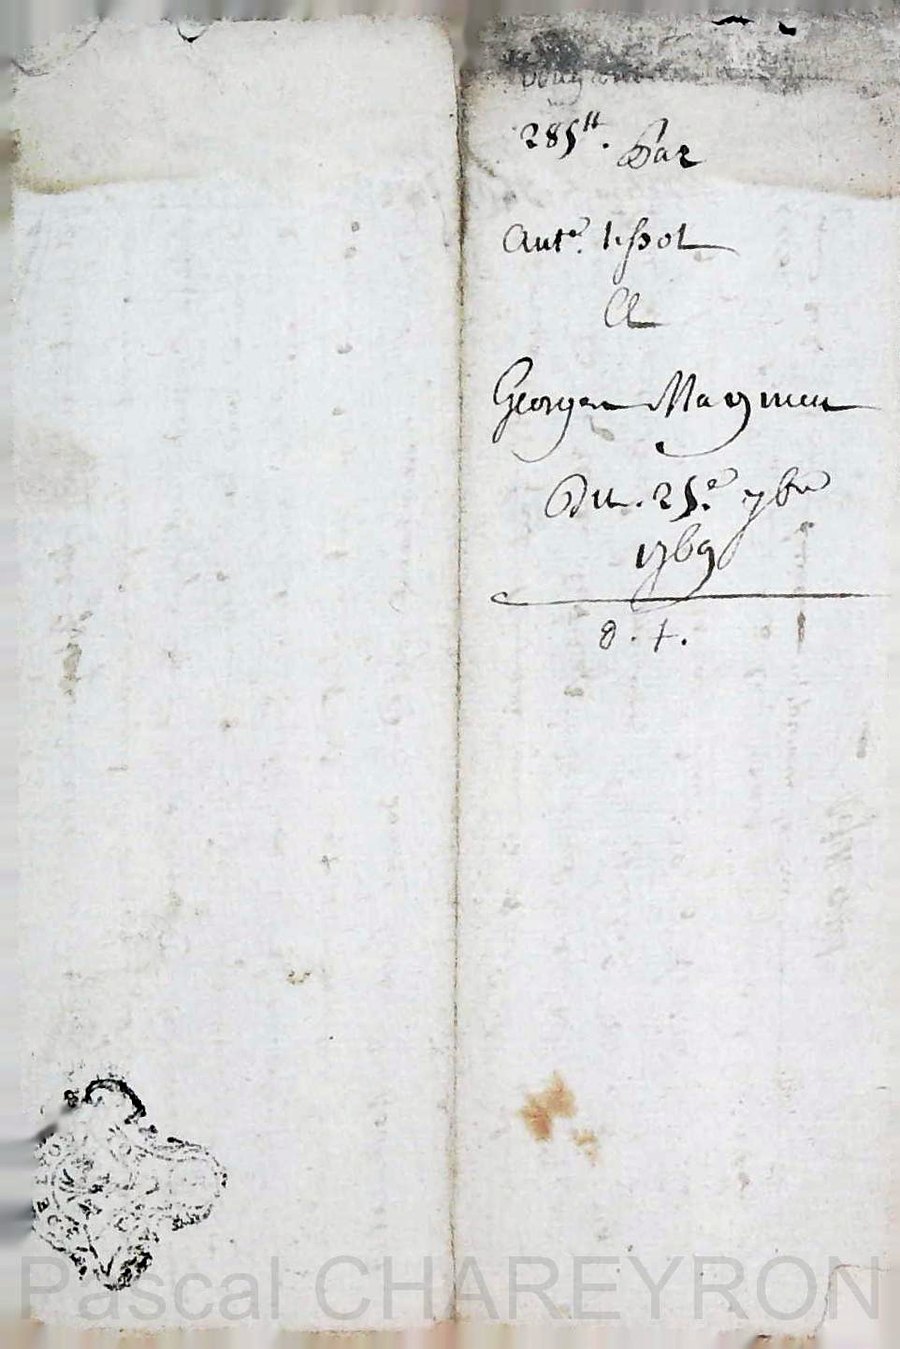 285tt. Par
Ant.e tissot
A
George Maymeu
Du. 25.e 7bre
1769
8. +.
Pascal CHAREYRON